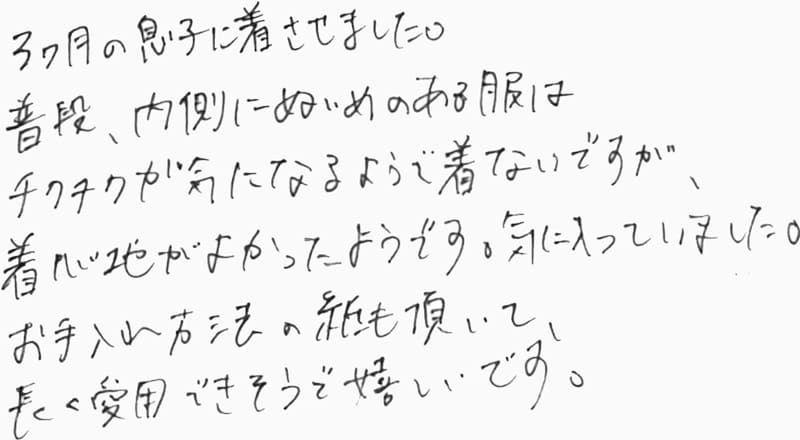 3ヶ月の息子に着させました。
普段、内側にぬいめのある服は
チクチクが気になるようで着ないですが、
着心地がよかったようです。気に入っていました。
お手入れ方法の紙も頂いて、
長く愛用できそうで嬉しいです。